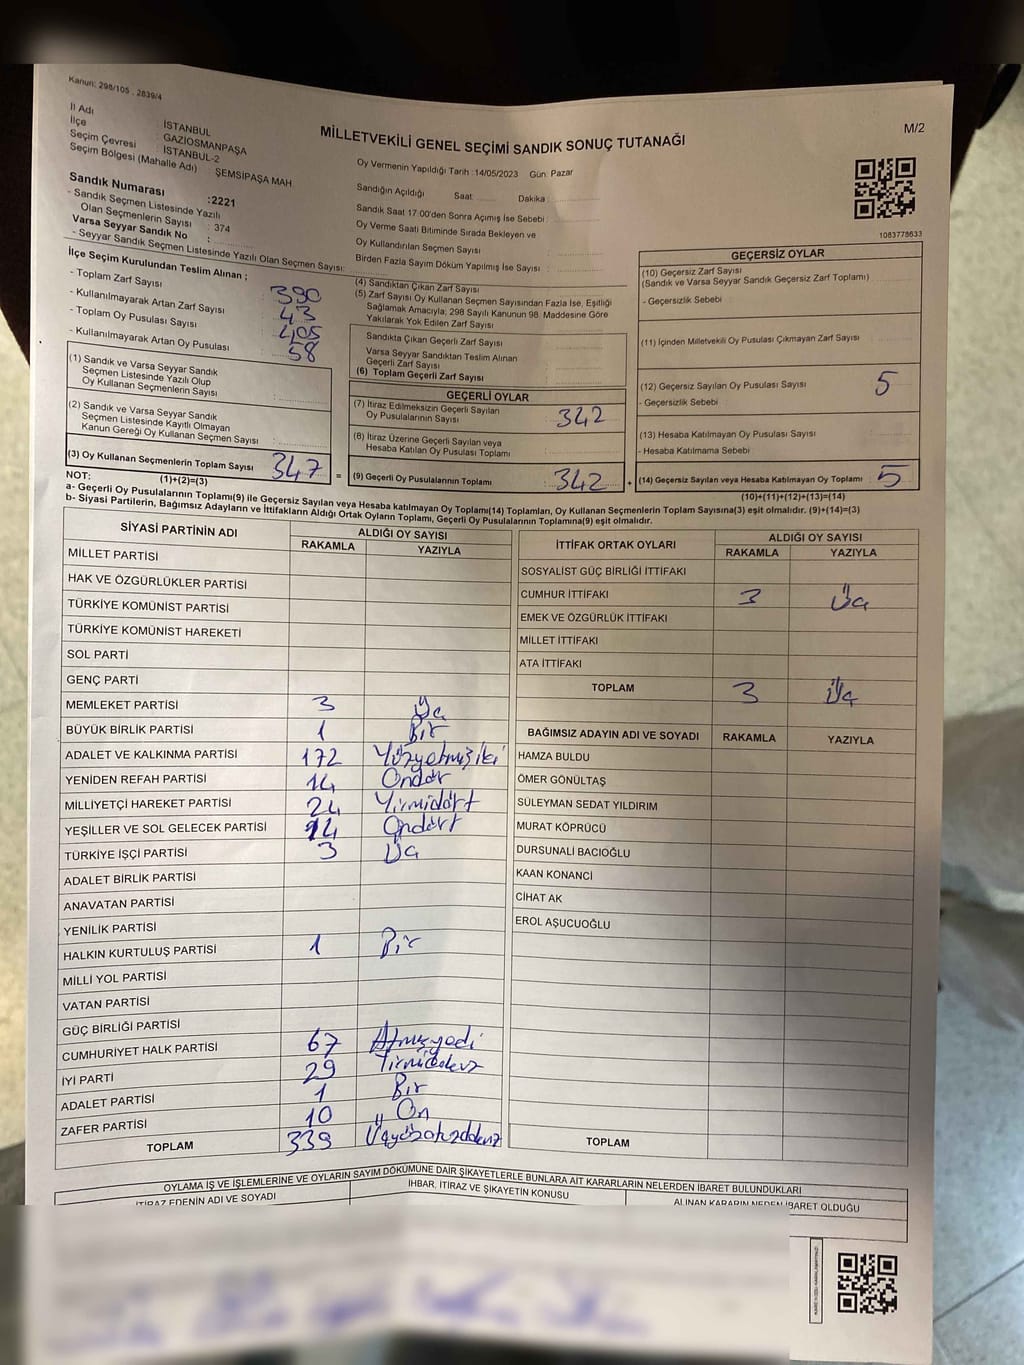 Kanun: 298/105 . 2839/4
M/2
MİLLETVEKİLİ GENEL SEÇİMİ SANDIK SONUÇ TUTANAĞI
İl Adı : İSTANBUL
İlçe : GAZİOSMANPAŞA
Seçim Çevresi : İSTANBUL-2
Seçim Bölgesi (Mahalle Adı) ŞEMSİPAŞA MAH.
Sandık Numarası :2221
- Sandık Seçmen Listesinde Yazılı
Olan Seçmenlerin Sayısı : 374
Varsa Seyyar Sandık No :
- Seyyar Sandık Seçmen Listesinde Yazılı Olan Seçmen Sayısı:
Oy Vermenin Yapıldığı Tarih :14/05/2023 Gün: Pazar
Sandığın Açıldığı Saat: Dakika:
Sandık Saat 17:00'den Sonra Açımış İse Sebebi :
Oy Verme Saati Bitiminde Sırada Bekleyen ve
Oy Kullandırılan Seçmen Sayısı
Birden Fazla Sayım Döküm Yapılmış İse Sayısı :
1083778633
İlçe Seçim Kurulundan Teslim Alınan ;
- Toplam Zarf Sayısı : 390
- Kullanılmayarak Artan Zarf Sayısı : 43
- Toplam Oy Pusulası Sayısı : 405
- Kullanılmayarak Artan Oy Pusulası : 58
(1) Sandık ve Varsa Seyyar Sandık
Seçmen Listesinde Yazılı Olup
Oy Kullanan Seçmenlerin Sayısı :
(2) Sandık ve Varsa Seyyar Sandık
Seçmen Listesinde Kayıtlı Olmayan
Kanun Gereği Oy Kullanan Seçmen Sayısı :
(3) Oy Kullanan Seçmenlerin Toplam Sayısı 347 =
(1)+(2)=(3)
(4) Sandıktan Çıkan Zarf Sayısı
(5) Zarf Sayısı Oy Kullanan Seçmen Sayısından Fazla İse, Eşitliği
Sağlamak Amacıyla; 298 Sayılı Kanunun 98. Maddesine Göre
Yakılarak Yok Edilen Zarf Sayısı
Sandıkta Çıkan Geçerli Zarf Sayısı
Varsa Seyyar Sandıktan Teslim Alınan
Geçerli Zarf Sayısı
(6) Toplam Geçerli Zarf Sayısı
GEÇERLİ OYLAR
(7) İtiraz Edilmeksizin Geçerli Sayılan
Oy Pusulalarının Sayısı : 342
(8) İtiraz Üzerine Geçerli Sayılan veya
Hesaba Katılan Oy Pusulası Toplamı
(9) Geçerli Oy Pusulalarının Toplamı 342 +
GEÇERSİZ OYLAR
(10) Geçersiz Zarf Sayısı
(Sandık ve Varsa Seyyar Sandık Geçersiz Zarf Toplamı)
- Geçersizlik Sebebi
(11) İçinden Milletvekili Oy Pusulası Çıkmayan Zarf Sayısı
(12) Geçersiz Sayılan Oy Pusulası Sayısı 5
- Geçersizlik Sebebi
(13) Hesaba Katılmayan Oy Pusulası Sayısı
- Hesaba Katılmama Sebebi
(14) Geçersiz Sayılan veya Hesaba Katılmayan Oy Toplamı : 5
(10)+(11)+(12)+(13)=(14)
NOT:
a- Geçerli Oy Pusulalarının Toplamı(9) ile Geçersiz Sayılan veya Hesaba katılmayan Oy Toplamı(14) Toplamları, Oy Kullanan Seçmenlerin Toplam Sayısına(3) eşit olmalıdır. (9)+(14)=(3)
b- Siyasi Partilerin, Bağımsız Adayların ve İttifakların Aldığı Ortak Oyların Toplamı, Geçerli Oy Pusulalarının Toplamına(9) eşit olmalıdır.
SİYASİ PARTİNİN ADI ALDIĞI OY SAYISI
RAKAMLA YAZIYLA
MİLLET PARTİSİ
HAK VE ÖZGÜRLÜKLER PARTİSİ
TÜRKİYE KOMÜNİST PARTİSİ
TÜRKİYE KOMÜNİST HAREKETİ
SOL PARTİ
GENÇ PARTİ
MEMLEKET PARTİSİ 3 Üç
BÜYÜK BİRLİK PARTİSİ 1 Bir
ADALET VE KALKINMA PARTİSİ 172 Yüzyetmişiki
YENİDEN REFAH PARTİSİ 14 Ondört
MİLLİYETÇİ HAREKET PARTİSİ 24 Yirmidört
YEŞİLLER VE SOL GELECEK PARTİSİ 14 Ondört
TÜRKİYE İŞÇİ PARTİSİ 3 Üç
ADALET BİRLİK PARTİSİ
ANAVATAN PARTİSİ
YENİLİK PARTİSİ
HALKIN KURTULUŞ PARTİSİ 1 Bir
MİLLİ YOL PARTİSİ
VATAN PARTİSİ
GÜÇ BİRLİĞİ PARTİSİ
CUMHURİYET HALK PARTİSİ 67 Atmışyedi
İYİ PARTİ 29
ADALET PARTİSİ 1 Bir
ZAFER PARTİSİ 10 On
TOPLAM 339
İTTİFAK ORTAK OYLARI ALDIĞI OY SAYISI
RAKAMLA YAZIYLA
SOSYALİST GÜÇ BİRLİĞİ İTTİFAKI
CUMHUR İTTİFAKI 3 Üç
EMEK VE ÖZGÜRLÜK İTTİFAKI
MİLLET İTTİFAKI
ATA İTTİFAKI
TOPLAM 3 Üç
BAĞIMSIZ ADAYIN ADI VE SOYADI RAKAMLA YAZIYLA
HAMZA BULDU
ÖMER GÖNÜLTAŞ
SÜLEYMAN SEDAT YILDIRIM
MURAT KÖPRÜCÜ
DURSUNALİ BACIOĞLU
KAAN KONANCİ
CİHAT AK
EROL AŞUCUOĞLU
TOPLAM
OYLAMA İŞ VE İŞLEMLERİNE VE OYLARIN SAYIM DÖKÜMÜNE DAİR ŞİKAYETLERLE BUNLARA AİT KARARLARIN NELERDEN İBARET BULUNDUKLARI
İTİRAZ EDENİN ADI VE SOYADI İHBAR, İTİRAZ VE ŞİKAYETİN KONUSU ALINAN KARARIN NEDEN İBARET OLDUĞU